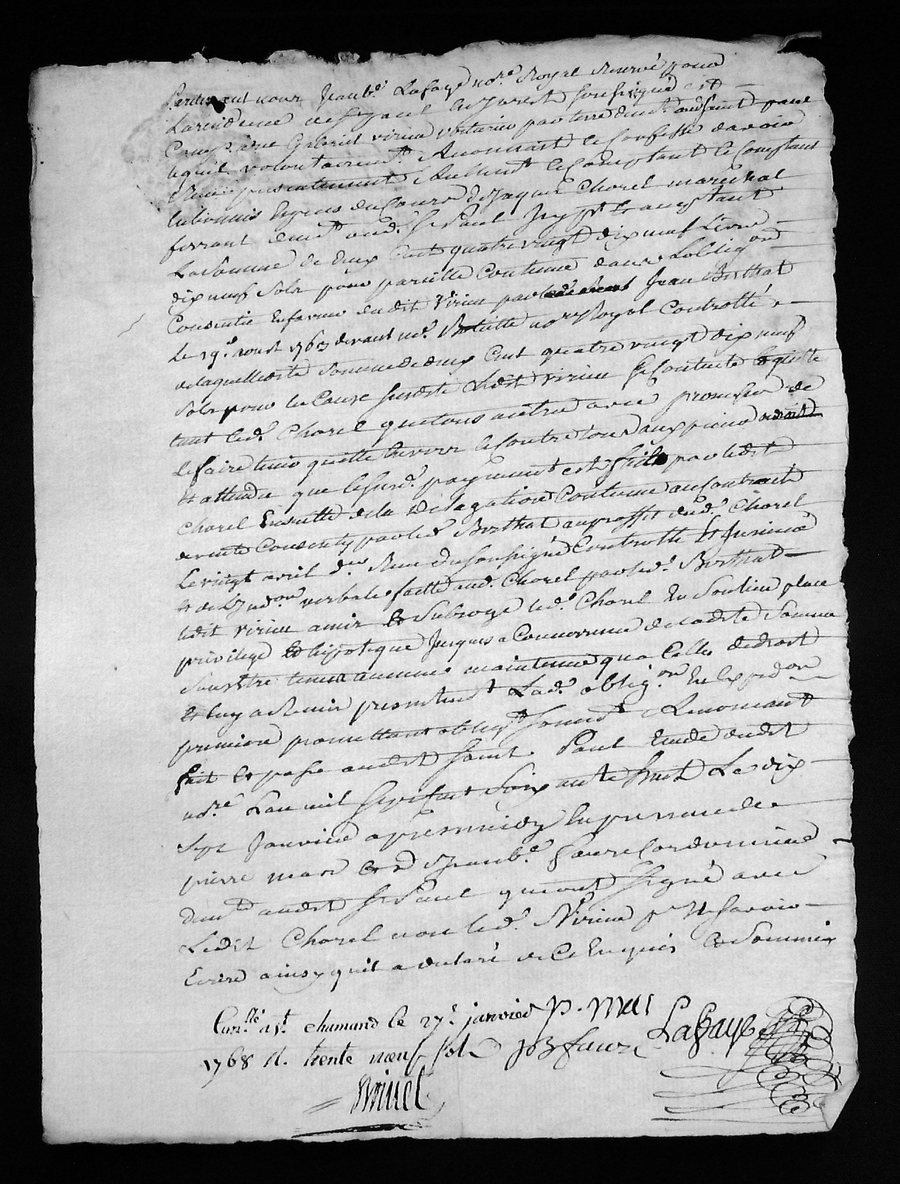 Pardevant nous Jean Bte Lafaye nore Royal Reservé pour
La residence de St paul En Jarest soussigné Est
Comparu Gabriel virieu voiturier par terre demt audt saint paul
lequel volontairemt a reconnu & Confesse davoir
Reçu presentement Reellemt & Comptant
En bonnes Espèces du Cours de Jaques Chorel marechal
ferrant demt audt St Paul Icy pnt & acceptant
La somme de deux Cent quatre vingt dix neuf Livres
dix neuf sols pour pareille Contenue dans Lobligon
Consentie En faveur dudit virieu par Jean Berthat
Le 19e aoust 1763 devant me nore Royal Controllé
de laquelle dte somme de deux Cent quatre vingt dix neuf
sols pour les Causes susdtes Ledit virieu se Contente & quitte
tant ledt Chorel que tous autres avec promesse de
le faire tenir quitte Envers & Contre tous
Et attendu que le susdt payement est fait par ledit
Chorel En suitte de la Delegation Contenue au Contract
de vente Consenty par ledt Berthat au proffit dudt Chorel
Le vingt avril der Reçu du soussigné Controllé Et Insinué
Et de verbale faitte audt Chorel par ledt Berthat
ledit virieu a mis & Subrogé ledt Chorel En Son lieu place
privilege Et hipoteque Jusques a Concurrence de ladite Somme
Sans Etre tenu a aucune maintenue qua Celle de droit
Et luy a Remis presentemt Ladte obligon En Expedon
premiere promettant obligt Soumt & Renonceant
fait Et passé audit Saint Paul Etude dudit
nore Lan mil Sept Cent Soixante huit Le dix
Sept Janvier apres midy En presence de
pierre mas & de Jean Bte faure Cordonnier
demt audit St Paul qui ont Signé avec
Ledit Chorel non ledt Virieu pr ne Savoir
Ecrire ainsy quil a declaré de Ce Enquis & Sommé
Conllé a St chamand le 27e janvier P. Mas
1768 R. trente nœuf sols JB faure Lafaye